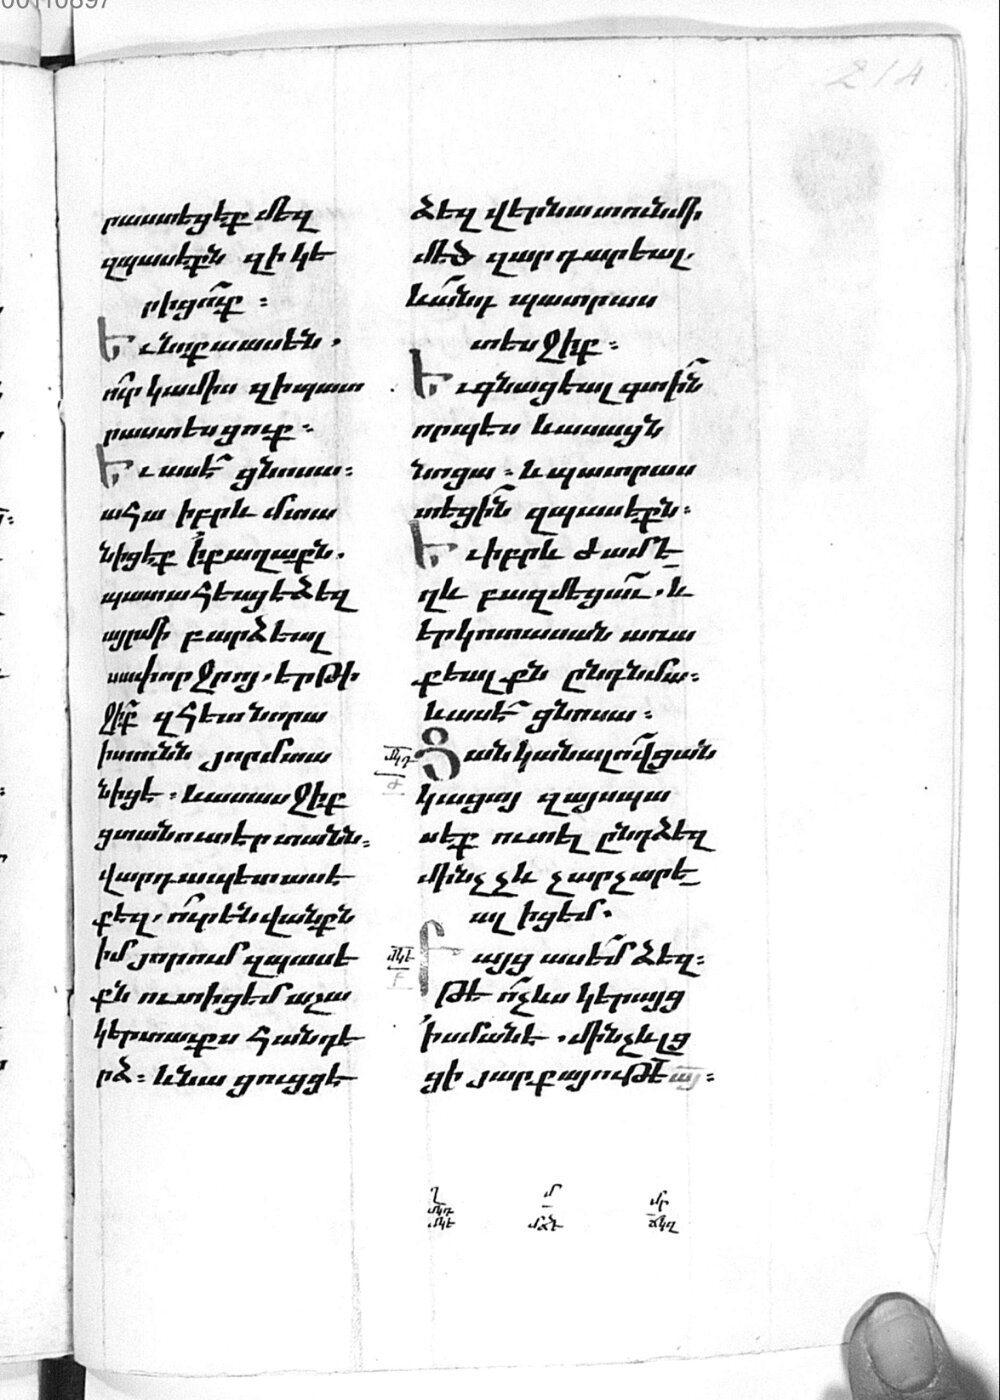 00110897
214
րաստեցէք մեզ
զպասեքն զի կե
րիցո՞ւք ։
Եւ նոքա ասեն.
ո՞ւր կամիս զի պատ
րաստեսցուք։
Եւ ասէ ցնոսա։
ահա իբրև մտա
նիցէք ի քաղաքն.
պատահեսցէ ձեզ
այր մի բարձեալ
սափոր ջրոյ. երթի
ջիք զհետ նորա
ի տունն յոր մտա
նիցէ. և ասասջիք
ցտանուտէր տանն։
վարդապետ ասէ
քեզ. ո՞ւր են վանքն
իմ յորում զպասե
քն ուտիցեմ աշա
կերտաքս հանդե
րձ։ և նա ցուցցէ
ձեզ վերնատուն մի
մեծ զարդարեալ.
և անդ պատրաս
տեսջիք։
Եւ գնացեալ գտին
որպէս և ասացն
նոցա. և պատրաս
տեցին զպասեքն։
Եւ իբրև ժամ է
ղև բազմեցաւ. և
երկոտասան առա
քեալքն ընդ նմա։
և ասէ ցնոսա։
մկդ
Ցանկանալով ցան
կացայ զայս պա
սեք ուտել ընդ ձեզ
մինչչև չարչարե
ալ իցեմ.
մկե
Բայց ասեմ ձեզ։
թէ ո՛չ ևս կերայց
ի սմանէ. մինչև լց
ցի յարքայութե այ։
ղ
մ
մկդ
մկե
մձէ
ճկղ